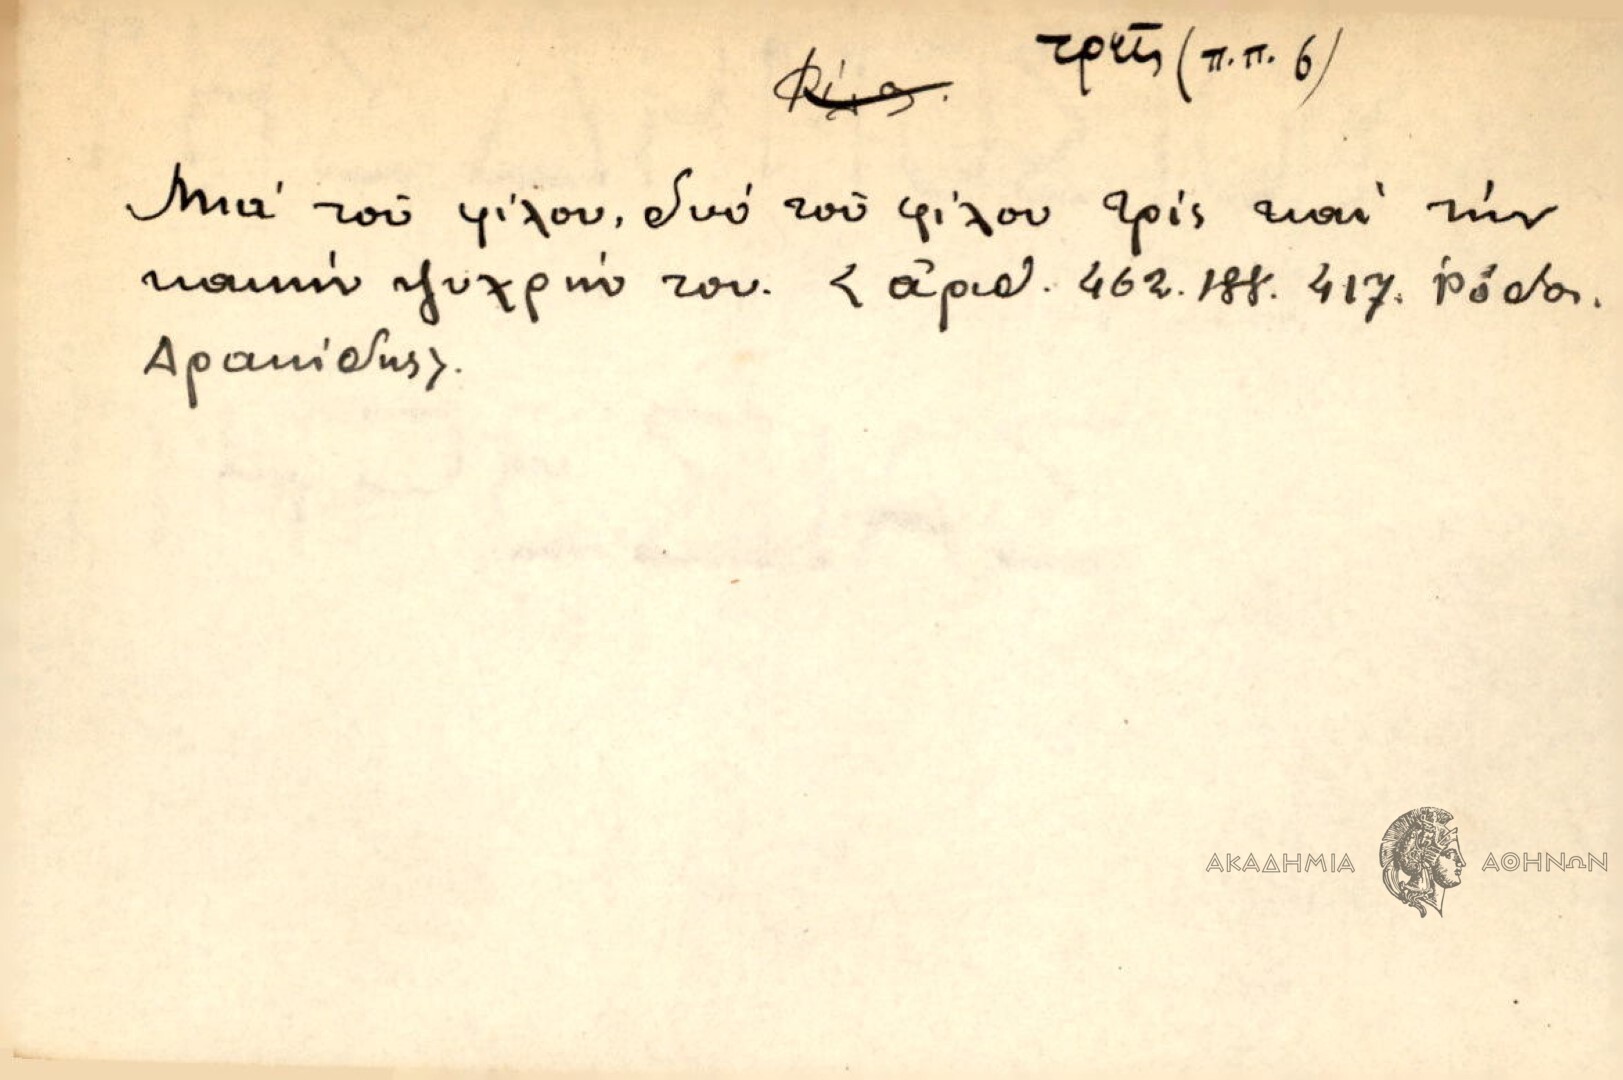 Φίλος. τρεῖς (π.π. 6)
Μιά τοῦ φίλου, δυό τοῦ φίλου τρίς καί τήν
κακήν ψυχρήν του. < ἀριθ. 462. 188. 417. Ῥόδος.
Δρακίδης>.
ΑΚΑΔΗΜΙΑ ΑΘΗΝΩΝ